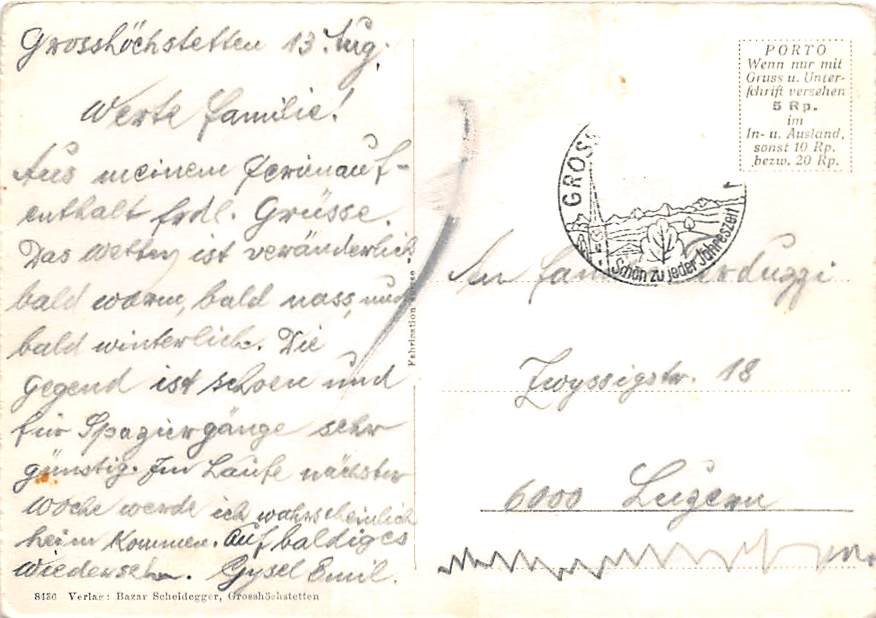 Grosshöchstetten 13 Aug.
Werte Familie!
Aus meinem Ferienauf-
enthalt frdl. Grüsse.
Das Wetter ist veränderlich
bald warm, bald nass, und
bald winterlich. Die
Gegend ist schoen und
für Spaziergänge sehr
günstig. Im Laufe nächster
Woche werde ich wahrscheinlich
heim kommen. Auf baldiges
Wiedersehn. Gysel Emil.
8436 Verlag: Bazar Scheidegger, Grosshöchstetten
Fabrication
PORTO
Wenn nur mit
Gruss u. Unter-
schrift versehen
5 Rp.
im
In- u. Ausland,
sonst 10 Rp.
bezw. 20 Rp.
GROSS
Schön zu jeder Jahreszeit
An Fam
Zwyssigstr. 18
6000 Luzern